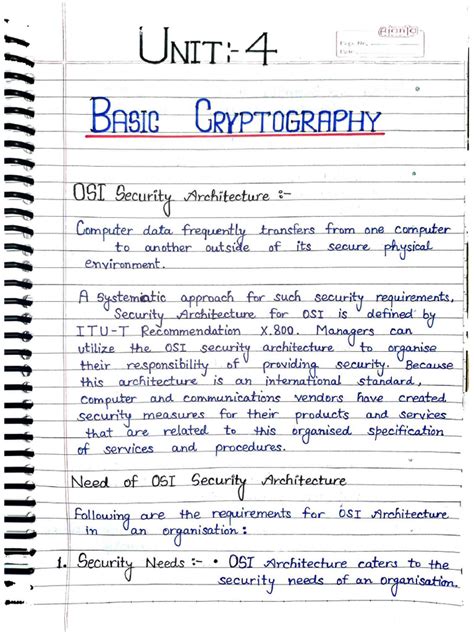 UNIT:-4
Page No.
Date
BASIC CRYPTOGRAPHY
OSI Security Architecture :-
Computer data frequently transfers from one computer
to another outside of its secure physical
environment.
A systematic approach for such security requirements,
Security Architecture for OSI is defined by
ITU-T Recommendation X.800. Managers can
utilize the OSI security architecture to organise
their responsibility of providing security. Because
this architecture is an international standard,
computer and communications vendors have created
security measures for their products and services
that are related to this organised specification
of services and procedures.
Need of OSI Security Architecture
Following are the requirements for OSI Architecture
in an organisation :
1. Security Needs :- • OSI Architecture caters to the
security needs of an organisation.